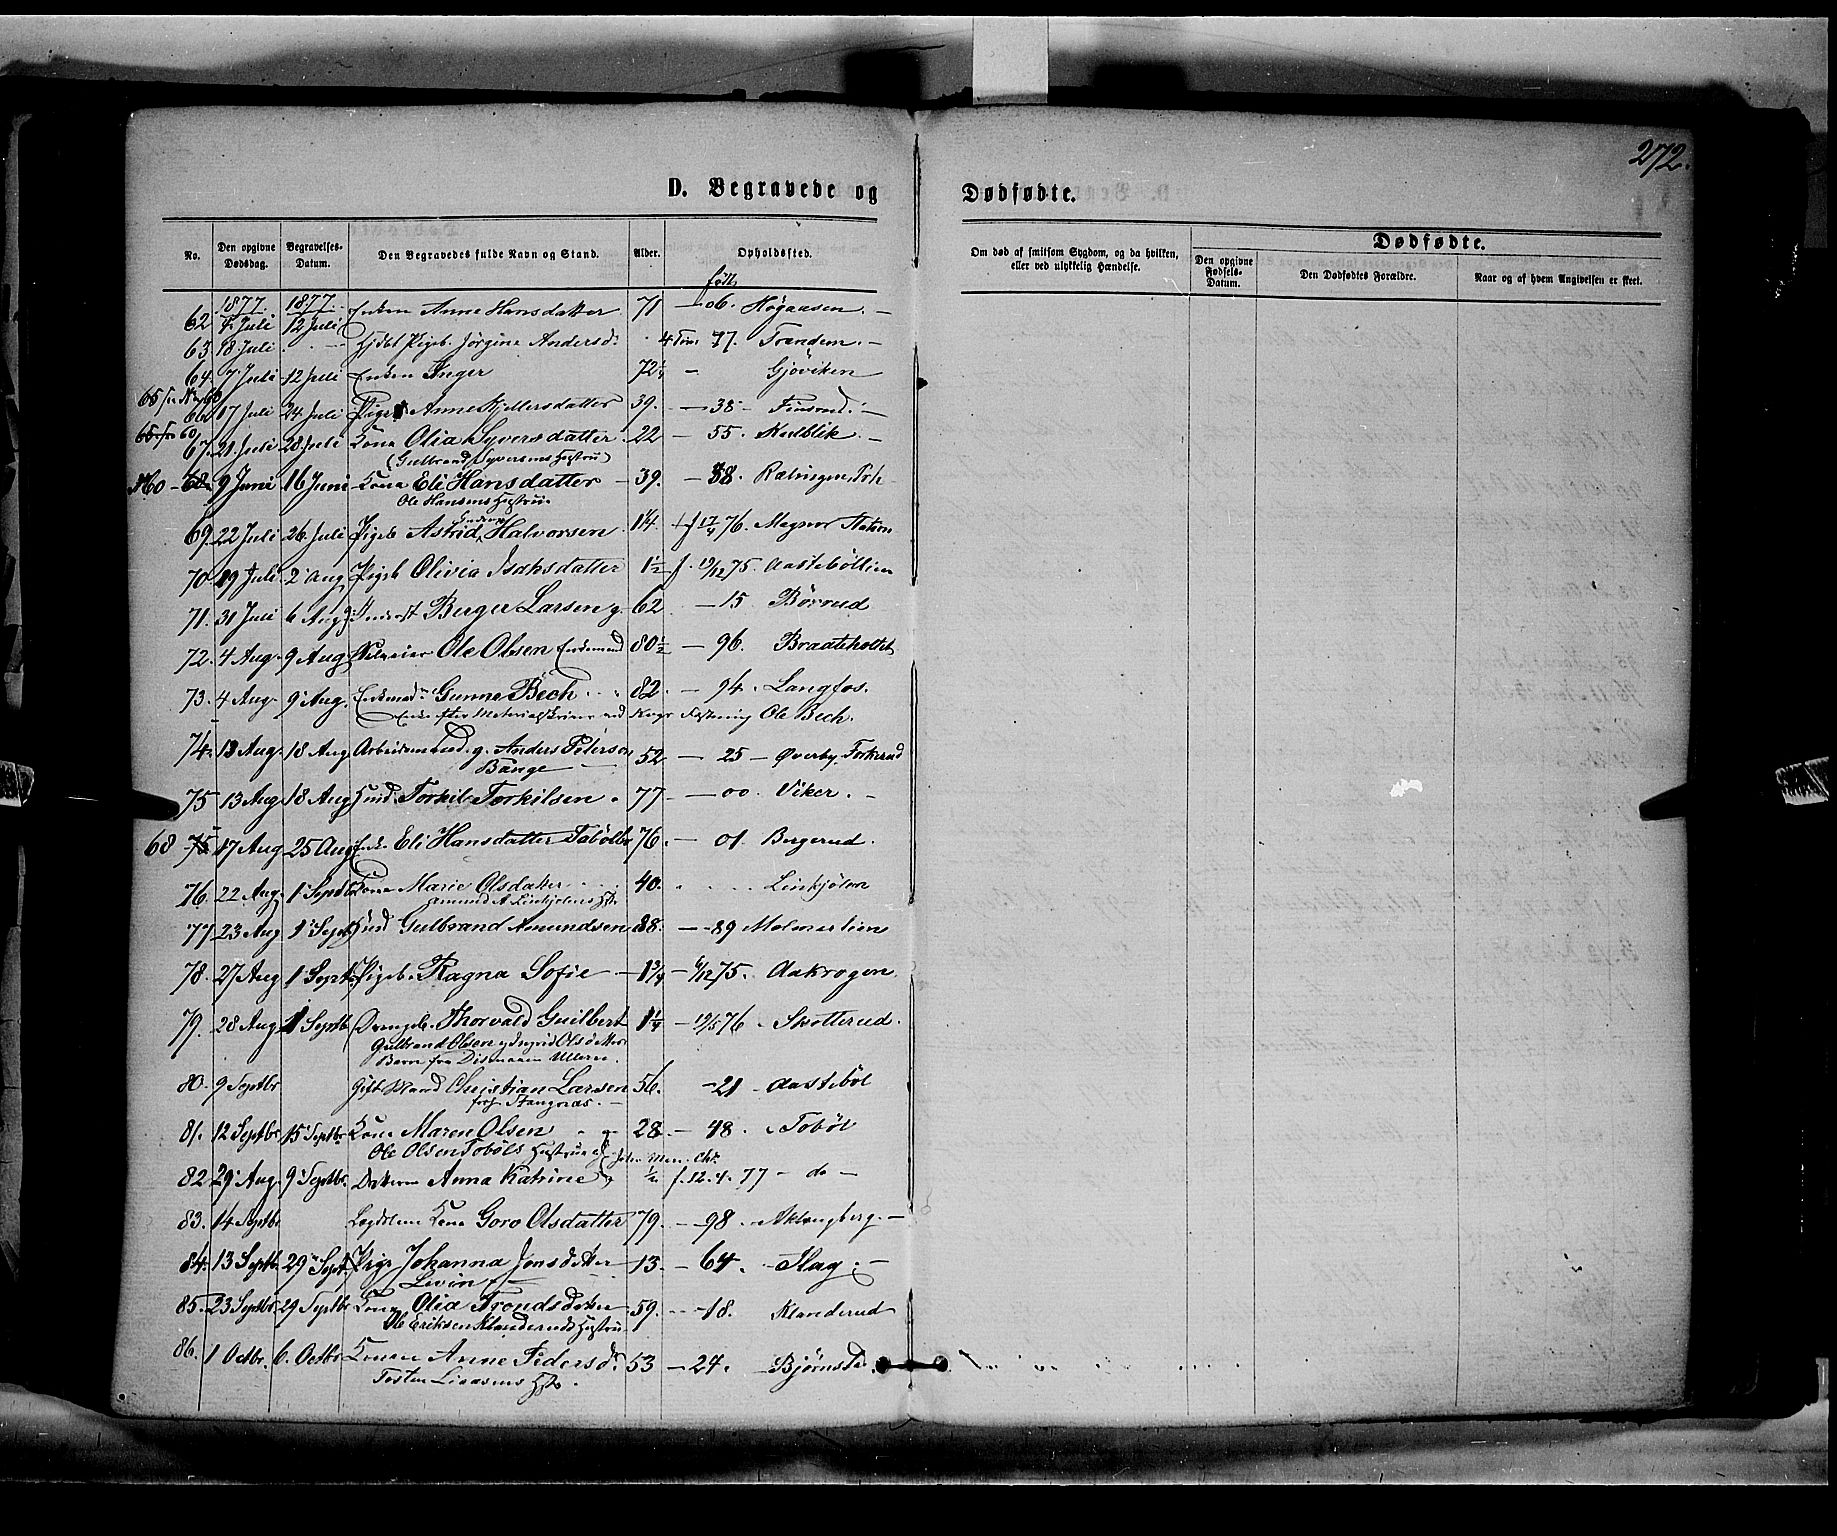 272.
D. Begravede og Dødfødte.
No. Den opgivne Dødsdag. Begravelses-Datum. Den Begravedes fulde Navn og Stand. Alder. Opholdssted. Om død af smitsom Sygdom, og da hvilken, eller ved ulykkelig Hændelse. Dødfødte.
Den opgivne Fødsels-Datum. Den Dødfødtes Forældre. Naar og af hvem Angivelsen er skeet.
født
1877. 1877.
62 7 Juli 12 Juli Enken Anne Hansdatter 71 — 06. Høgaasen. —
63 18 Juli Hjdbt Pigeb. Jörgine Andersd. 4 77. Trandem. —
64 7 Juli 12 Juli Enken Inger 72 1/4 — Gjöviken
65 66 17 Juli 24 Juli Pige Anne Kjellersdatter 39. — 38 — Finsrud. —
67 21 Juli 28 Juli Kone Olia Syversdatter 22 — 55. Kulblik. —
(Gulbrand Syversens Hustru)
No 60 — 68 9 Juni 16 Juni Kone Eli Hansdatter 39. — 38. Rælingen,
Ole Hansens Hustru
69. 22 Juli 26. Juli Pigeb Astrid Halvorsen 1 1/4 f 17/4 76. Magnor Station
70. 19 Juli 2 Aug Pigeb Olivia Isaksdatter 1 1/2 f. 19/12 75. Aastebøllien
71. 31 Juli 6 Aug Inderst Berger Larsen g. 62 — 15 Börrud
72. 4 Aug. 9 Aug Selveier Ole Olsen Enkemand 80 1/2 — 96. Braateholtet
73. 4 Aug. 9 Aug. Enkemad. Gunne Bech 82. — 94. Langfos.
Enke efter Materialskriver ved Kongs. Fæstning Ole Bech.
74. 13 Aug. 18 Aug Arbeidsmand g. Anders Peterson 52 — 25 — Øverby, Torkerud
Bange
75 13 Aug 18 Aug Inds. Torkil Torkilsen 77 — 00. Viker. —
68 75 17 Aug 25 Aug Enke Eli Hansdatter Tabölbr 76. — 01. Bergerud.
76. 22 Aug. 1 Septbr Kone Marie Olsdatter 40. Linkjölen
Amund A. Linkjölens Hst.
77 23 Aug 1 Septbr Inds Gulbrand Amundsen 88. — 89 Malmerlien
78. 27 Aug 1 Septbr. Pigeb. Ragna Sofie 1 3/4 — 6/12 75. Aakrogen.
79. 28 Aug. 1 Septbr Drengeb. Thorvald Guilbert 1 1/4 — 19/5 76 Skotterud.
Gulbrand Olsen og Ingrid Olsdtters
Barn fra
80. 9 Septbr Gift Mand Christian Larsen 56. — 21 Aastebøl
Stangnæs. —
81. 12 Septbr 15 Septbr. Kone Maren Olsen 28 — 48. Tobøl
Ole Olsen Tobøls Hustru
82 29 Aug. 9 Septbr. Anna Katrine 1/2 f. 12. 4. 77 — do —
83. 14 Septbr Lægdslem Kone Goro Olsdatter 79. — 98. Aklangberg. —
84. 13 Septbr. 29 Septbr. Pige Johanna Jonsdatter 13. — 64. Hag. —
Levin
85. 23 Septbr 29 Septbr Kone Olia Trondsdatter 59. — 18. Klanderud
Ole Eriksen Klanderuds Hustru
86. 1 Octbr. 6. Octbr Konen Anne Pedersd. 53 — 24. Bjørnstad.
Tosten Liaasens Hst.